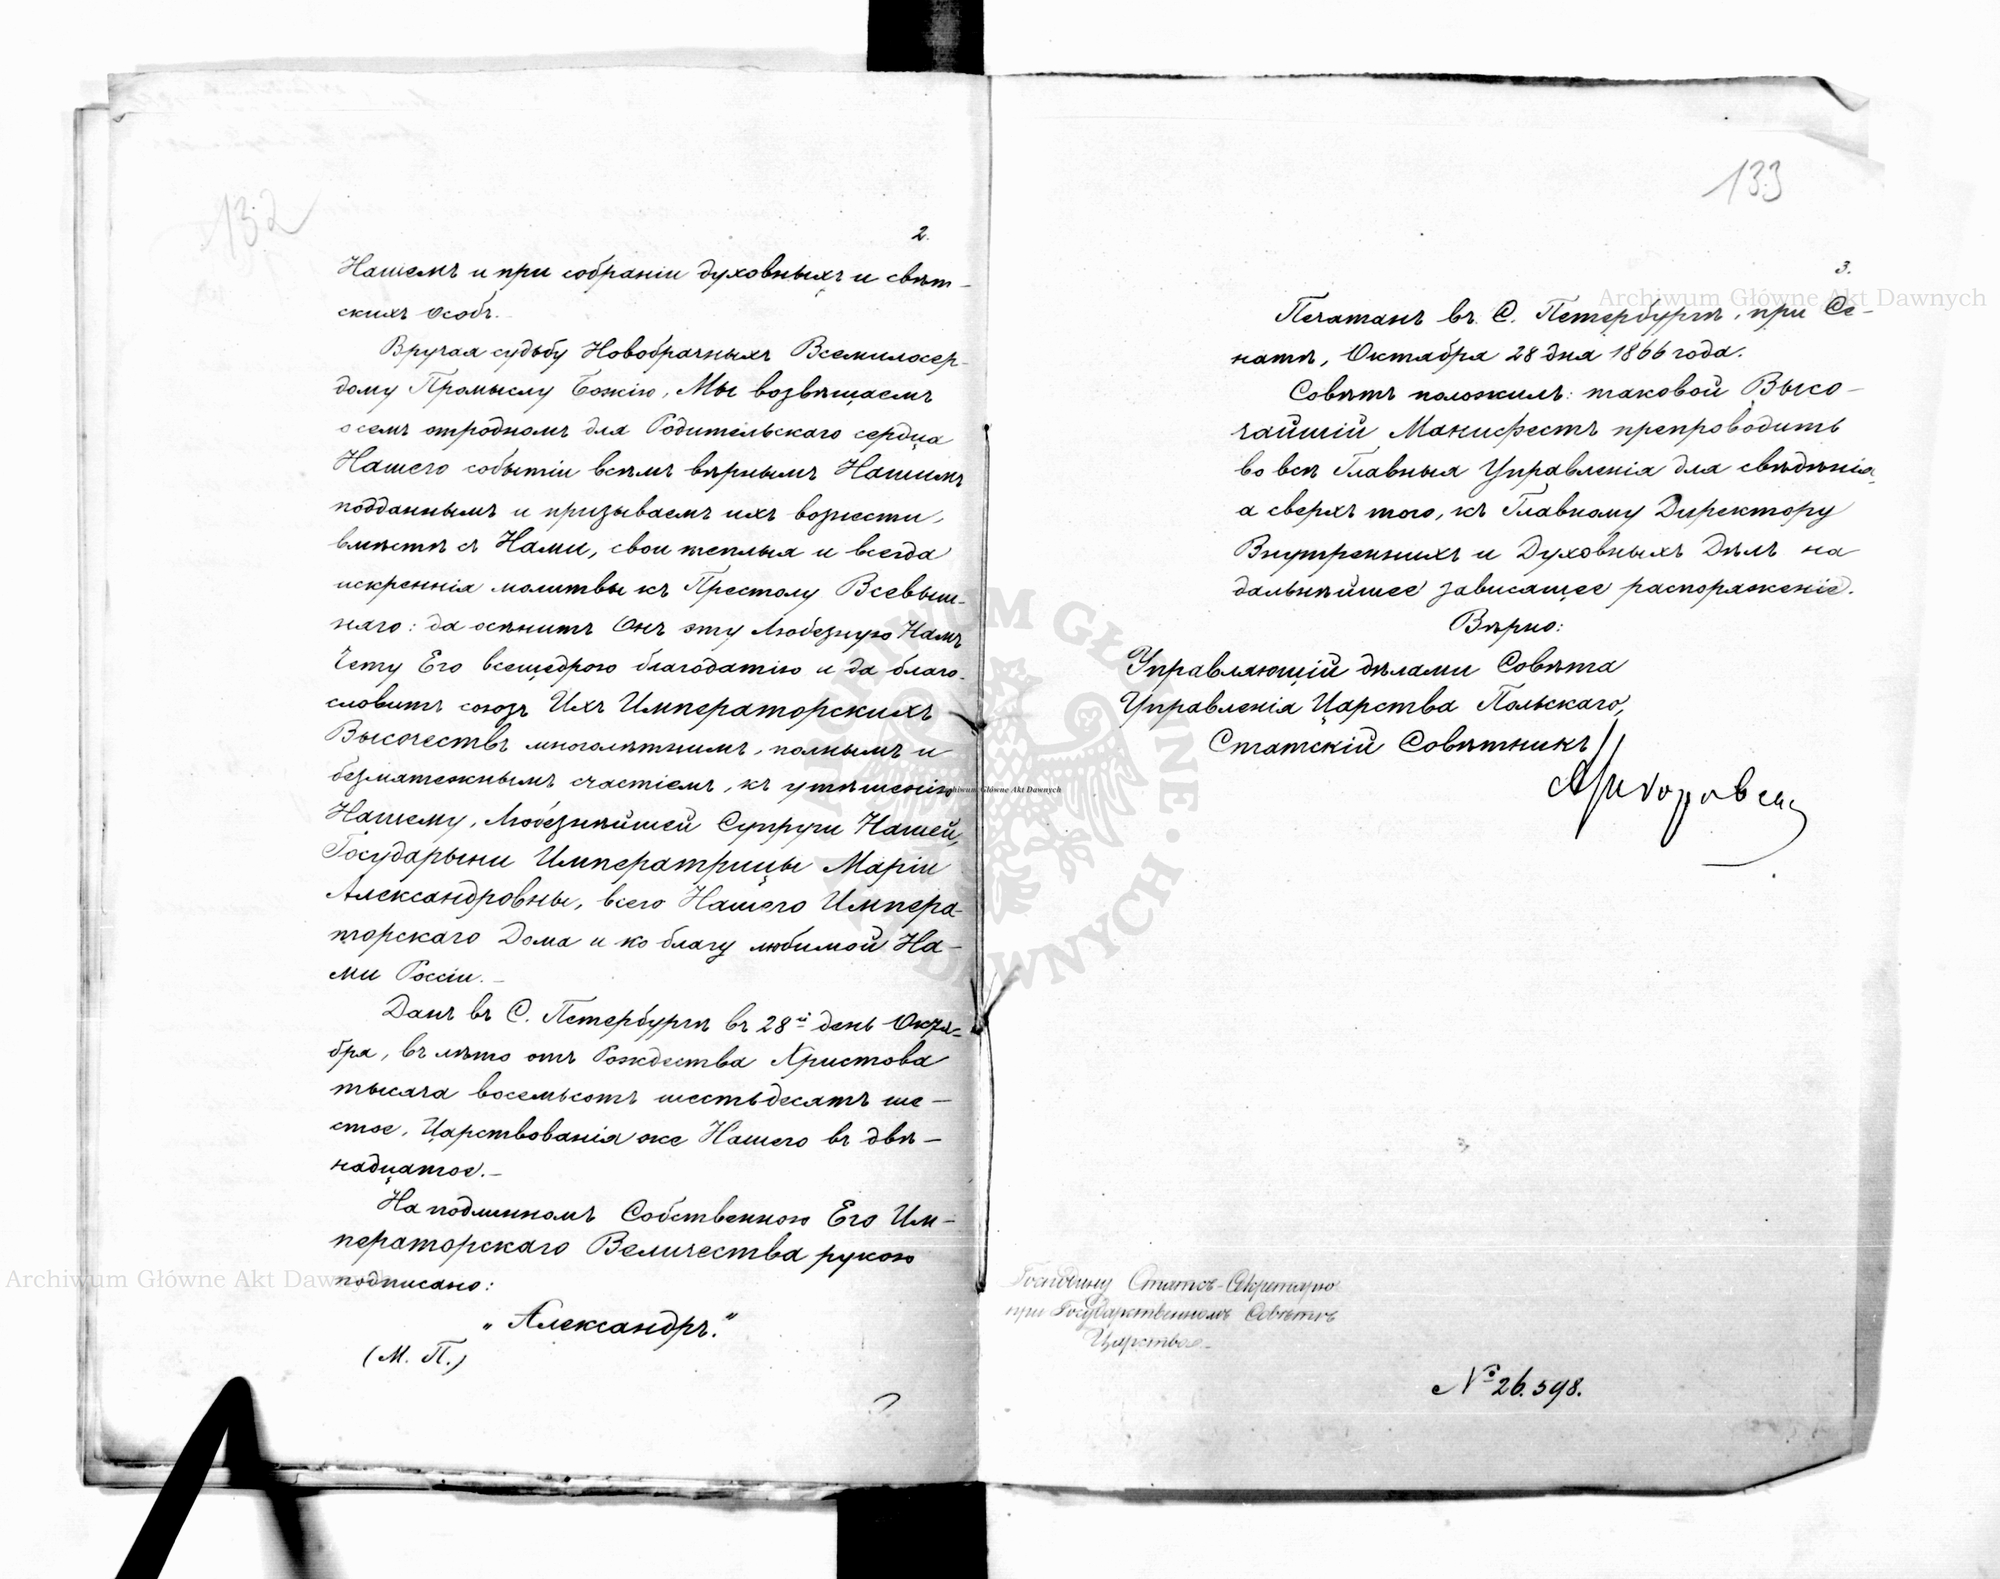 132
2.
Нашемъ и при собраніи духовныхъ и свѣт-
скихъ особъ.
Вручая судьбу Новобрачныхъ Всемилосер-
дому Промыслу Божію, Мы возвѣщаемъ
о семъ отрадномъ для Родительскаго сердца
Нашего событіи всѣмъ вѣрнымъ Нашимъ
подданнымъ и призываемъ ихъ вознести,
вмѣстѣ съ Нами, свои теплыя и всегда
искреннія молитвы къ Престолу Всевыш-
няго: да осѣнитъ Онъ эту Любезную Намъ
Чету Его всещедрою благодатію и да благо-
словитъ союзъ Ихъ Императорскихъ
Высочествъ многолѣтнимъ, полнымъ и
безмятежнымъ счастіемъ, къ утѣшенію
Нашему, Любезнѣйшей Супруги Нашей,
Государыни Императрицы Маріи
Александровны, всего Нашего Импера-
торскаго Дома и ко благу любимой На-
ми Россіи.-
Данъ въ С. Петербургѣ въ 28й день Октя-
бря, въ лѣто отъ Рождества Христова
тысяча восемьсотъ шестьдесятъ ше-
стое, Царствованія же Нашего въ двѣ-
надцатое.-
На подлинномъ Собственною Его Им-
ператорскаго Величества рукою
подписано:
„Александръ."
(М. П.)
133
3.
Печатанъ въ С. Петербургѣ, при Се-
натѣ, Октября 28 дня 1866 года.
Совѣтъ положилъ: таковой Высо-
чайшій Манифестъ препроводить
во всѣ Главныя Управленія для свѣдѣнія,
а сверхъ того, къ Главному Директору
Внутреннихъ и Духовныхъ Дѣлъ на
дальнѣйшее зависящее распоряженіе.
Вѣрно:
Управляющій дѣлами Совѣта
Управленія Царства Польскаго,
Статскій Совѣтникъ
Господину Статсъ-Секретарю
при Государственномъ Совѣтѣ
Царства.-
№ 26.598.
Archiwum Główne Akt Dawnych
Archiwum Główne Akt Dawnych
Archiwum Główne Akt Dawnych
ARCHIWUM GŁÓWNE AKT DAWNYCH